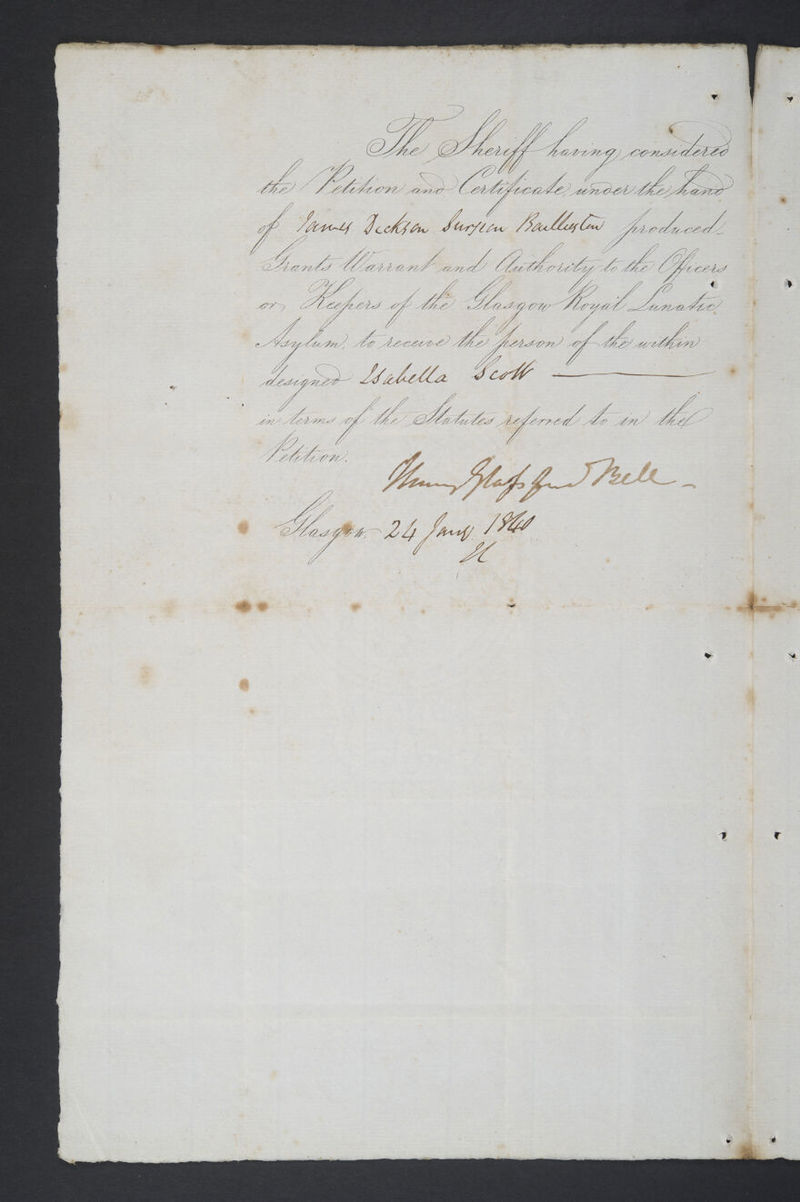 The Sheriff having considered
the Petition and Certificate under the hand
of James Dickson Surgeon Baillieston produced
Grants Warrant and Authority to the Officers
or Keepers of the Glasgow Royal Lunatic
Asylum, to receive the person of the within
designed Isabella Scott
in terms of the Statutes referred to in the
Petition.
Henry Glassford Bell
Glasgow 24 Jany 1840